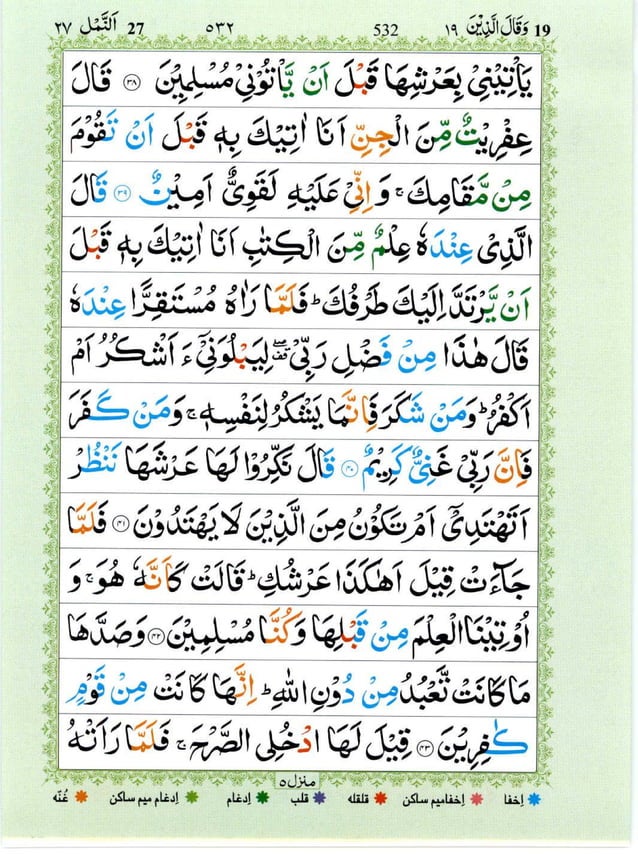 19 وَقَالَ الَّذِيْنَ ١٩ 532 ٥٣٢ 27 اَلنَّمْل ٢٧
يَاْتِيْنِيْ بِعَرْشِهَا قَبْلَ اَنْ يَّاْتُوْنِيْ مُسْلِمِيْنَ ﴿٣٨﴾ قَالَ
عِفْرِيْتٌ مِّنَ الْجِنِّ اَنَا اٰتِيْكَ بِهٖ قَبْلَ اَنْ تَقُوْمَ
مِنْ مَّقَامِكَ ۚ وَاِنِّيْ عَلَيْهِ لَقَوِيٌّ اَمِيْنٌ ﴿٣٩﴾ قَالَ
الَّذِيْ عِنْدَهٗ عِلْمٌ مِّنَ الْكِتٰبِ اَنَا اٰتِيْكَ بِهٖ قَبْلَ
اَنْ يَّرْتَدَّ اِلَيْكَ طَرْفُكَ ؕ فَلَمَّا رَاٰهُ مُسْتَقِرًّا عِنْدَهٗ
قَالَ هٰذَا مِنْ فَضْلِ رَبِّيْ ۖ لِيَبْلُوَنِيْٓ ءَاَشْكُرُ اَمْ
اَكْفُرُ ؕ وَمَنْ شَكَرَ فَاِنَّمَا يَشْكُرُ لِنَفْسِهٖ ۚ وَمَنْ كَفَرَ
فَاِنَّ رَبِّيْ غَنِيٌّ كَرِيْمٌ ﴿٤٠﴾ قَالَ نَكِّرُوْا لَهَا عَرْشَهَا نَنْظُرْ
اَتَهْتَدِيْٓ اَمْ تَكُوْنُ مِنَ الَّذِيْنَ لَا يَهْتَدُوْنَ ﴿٤١﴾ فَلَمَّا
جَآءَتْ قِيْلَ اَهٰكَذَا عَرْشُكِ ؕ قَالَتْ كَاَنَّهٗ هُوَ ۚ وَ
اُوْتِيْنَا الْعِلْمَ مِنْ قَبْلِهَا وَكُنَّا مُسْلِمِيْنَ ﴿٤٢﴾ وَصَدَّهَا
مَا كَانَتْ تَّعْبُدُ مِنْ دُوْنِ اللّٰهِ ؕ اِنَّهَا كَانَتْ مِنْ قَوْمٍ
كٰفِرِيْنَ ﴿٤٣﴾ قِيْلَ لَهَا ادْخُلِي الصَّرْحَ ۚ فَلَمَّا رَاَتْهُ
منزل ٥
اِخفا اِخفامیم ساکن قلقله قلب اِدغام اِدغام میم ساکن غُنّه